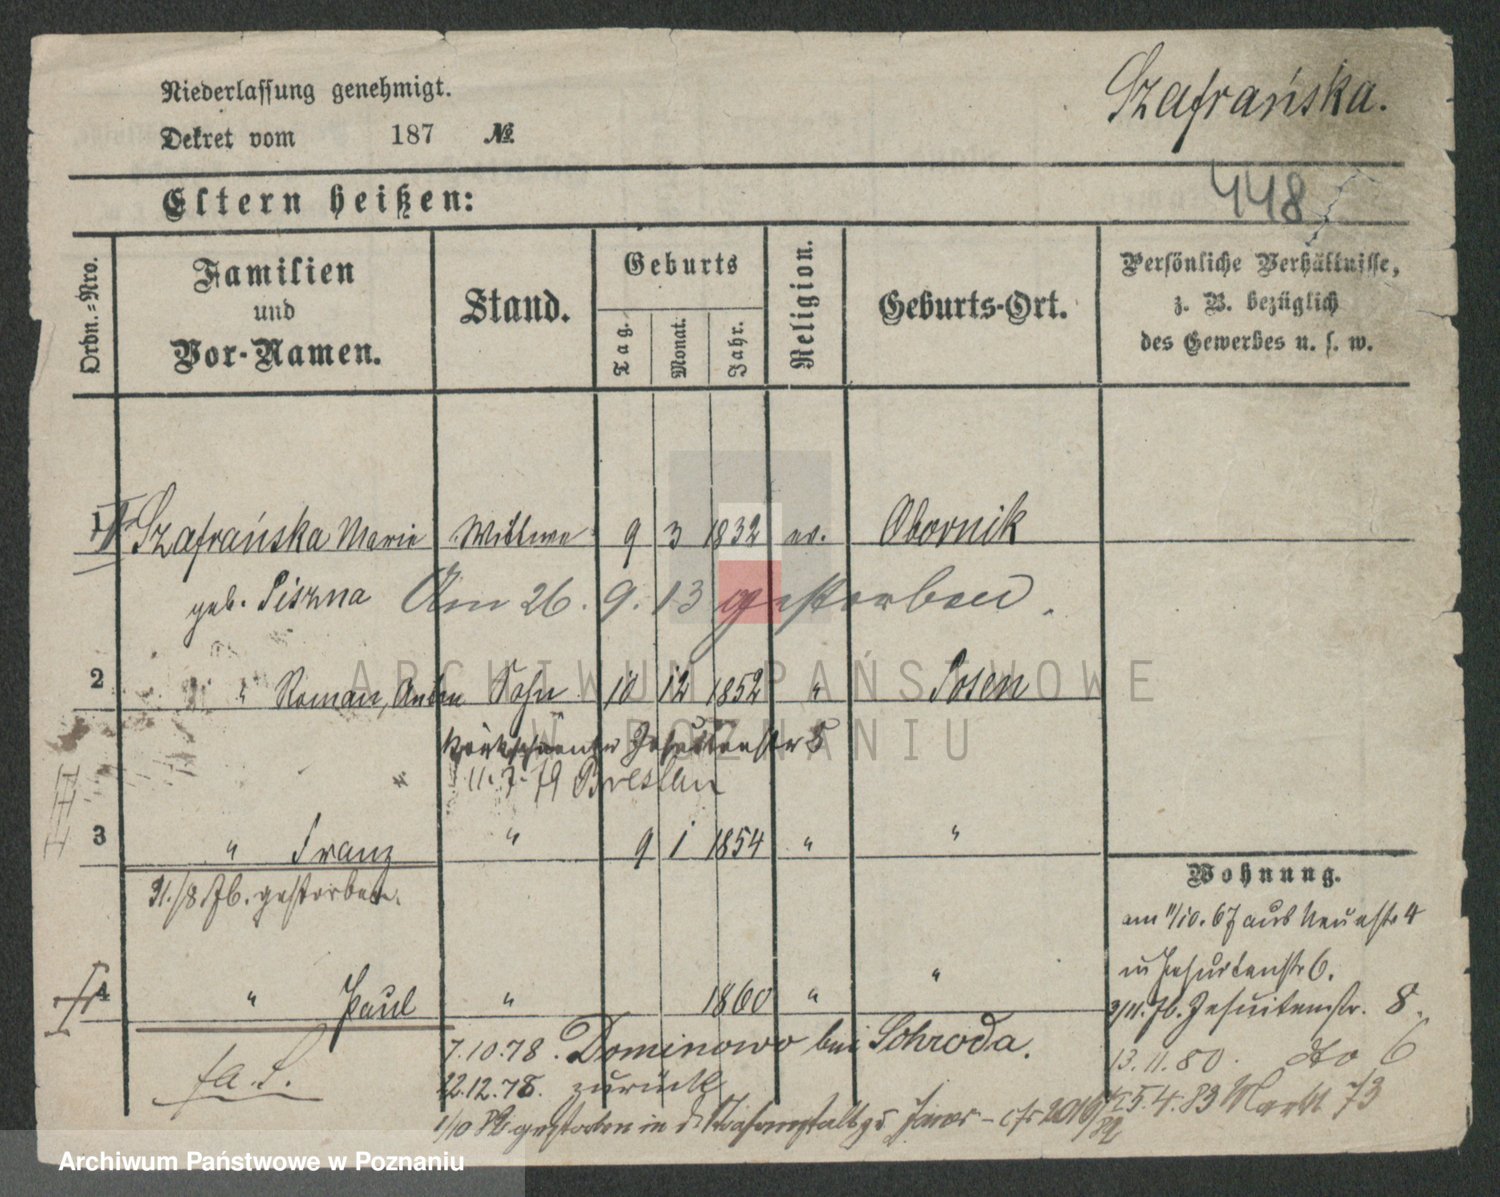 Niederlassung genehmigt.
Dekret vom 187 №
Szafrańska.
448
Eltern heißen:
Ordn.-Nro.
Familien und Vor-Namen.
Stand.
Geburts
Tag.
Monat.
Jahr.
Religion.
Geburts-Ort.
Persönliche Verhältnisse,
z. B. bezüglich
des Gewerbes u. s. w.
1 Szafrańska Marie Wittwe 9 3 1832 ev. Obornik
geb. Piszna Am 26. 9. 13 gestorben.
2 " Roman, Anton Sohn 10 12 1852 " Posen
Jesuitenstr 5
11.7.79 Breslau
3 " Franz " 9 1 1854 " "
31./8 76. gestorben.
Wohnung.
am 11/10. 67 aus Neuestr 4
in Jesuitenstr 6.
4 " Paul " 1860 " "
3/11. 76. Jesuitenstr. 8.
7.10.78. Dominowo bei Schroda.
13.11.80. do 6
22.12.78. zurück
5.4.83 Markt 73
gestorben in d. Strafanstalt zu Jawor
ARCHIWUM PAŃSTWOWE
W POZNANIU
Archiwum Państwowe w Poznaniu